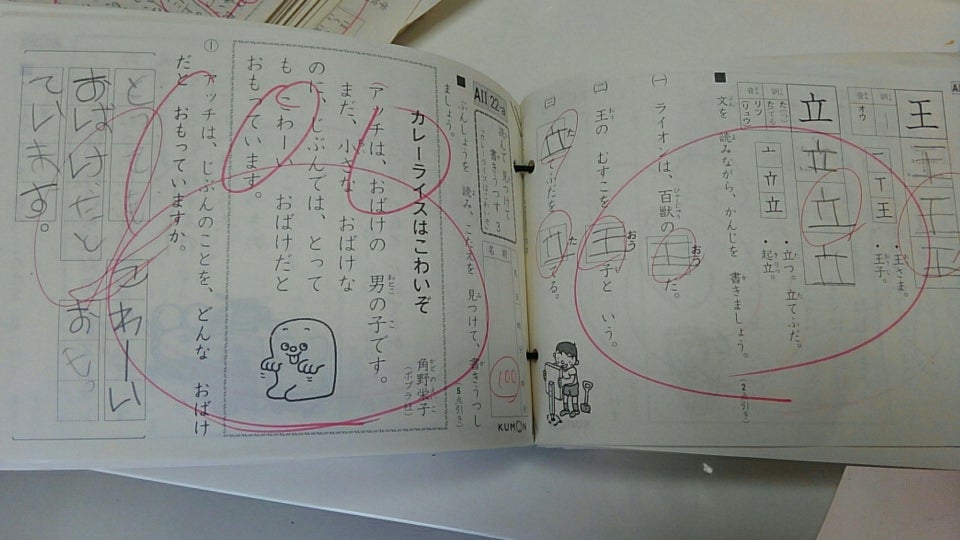 王
王
王
王
音 オウ 訓
一 T 王
・王さま。
・王子。
立
立
立
立
音 リツ （リュウ） 訓 たつ たてる
亠 立 立
・立つ。立てふだ。
・起立。
■ 文を 読みながら、かんじを 書きましょう。
（2点引き）
(一) ライオンは、百獣の 王だ。
(二) 王の むすこを 王子と いう。
(三) 立てふだを 立てる。
AII 22-a
読んで 見つけて 書きうつす 3
「カレーライスはこわいぞ」
名前
100
KUMON
■ ぶんしょうを 読み、こたえを 見つけて、書きうつしましょう。
（5点引き）
カレーライスはこわいぞ
角野栄子
（ポプラ社）
アッチは、おばけの 男の子です。
まだ、小さな おばけな
のに、じぶんでは、とって
も こわーい おばけだと
おもっています。
① アッチは、じぶんのことを、どんな おばけ
だと おもっていますか。
とっても こわーい
おばけだと おもっ
ています。